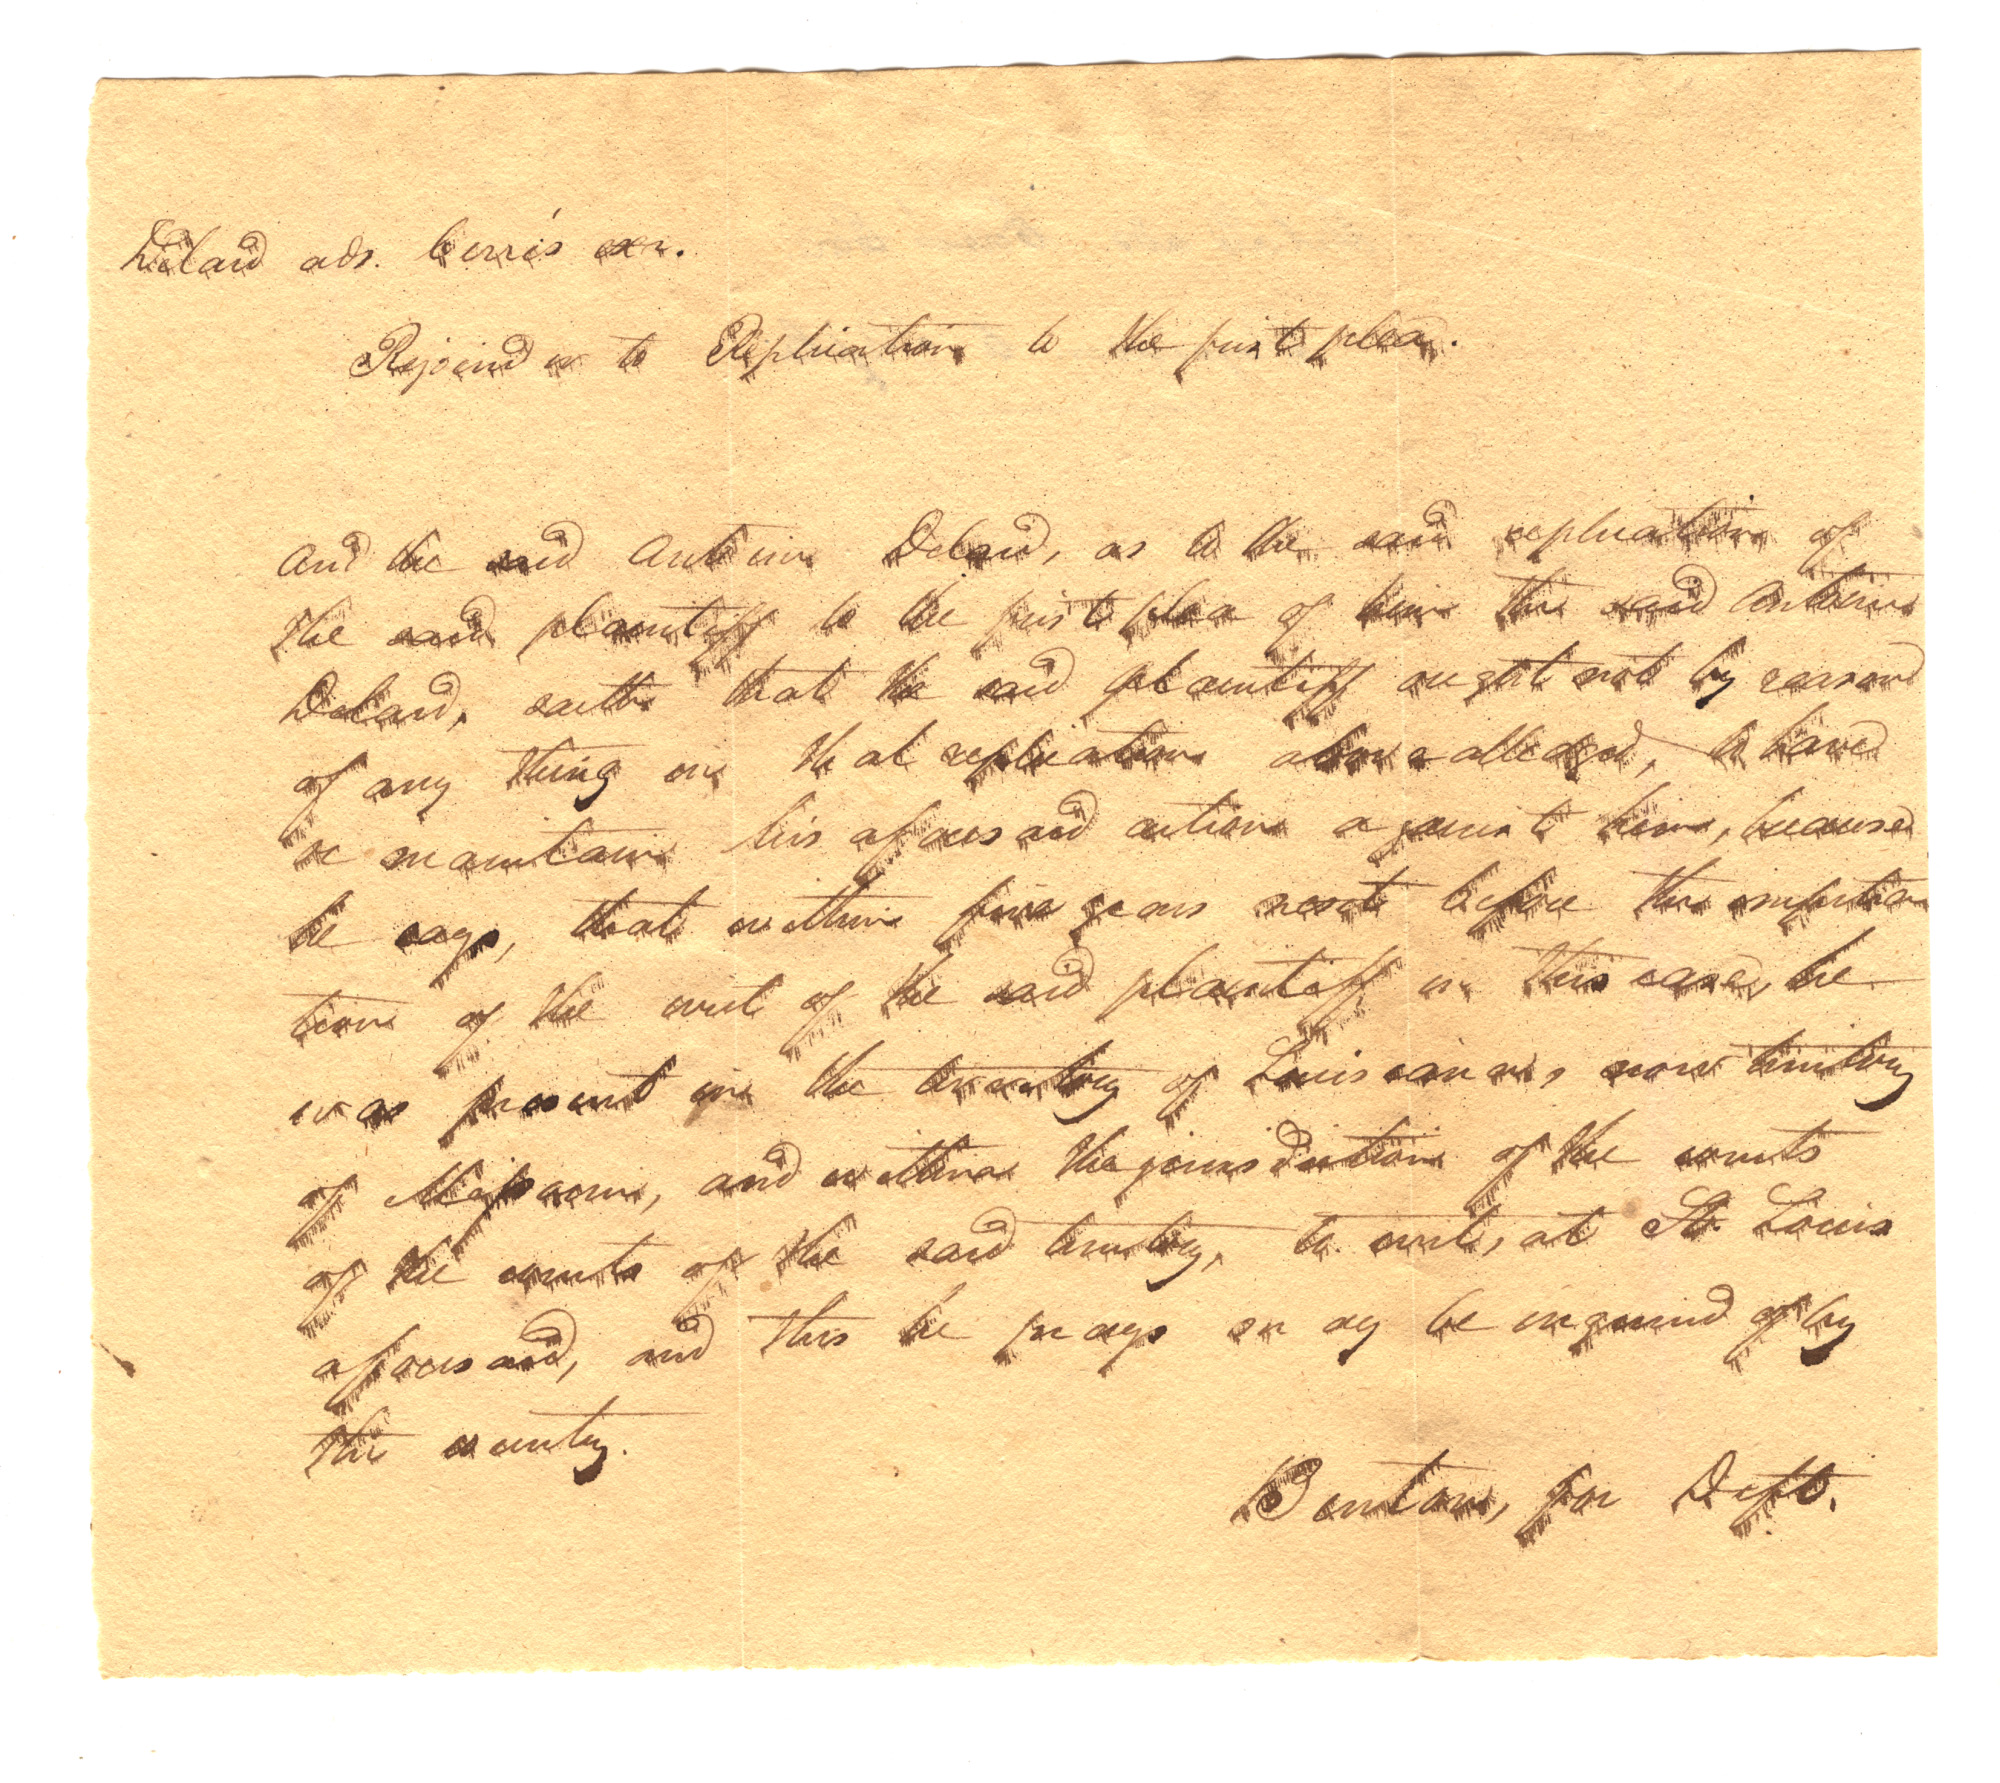 Delard ads. Cerré's exr.
Rejoinder to Replication to the first plea.
And the said Antoine Delard, as to the said replication of
the said plaintiff to the first plea of him the said Antoine
Delard, saith that the said plaintiff ought not by reason
of any thing in that replication above alledged, to have
or maintain his aforesaid action against him, because
he says, that within five years next before the
tion of the writ of the said plaintiff in this case, he
was present in the territory of Louisiana, now territory
of Missouri, and within the jurisdiction of the courts
of the courts of the said territory, to wit, at St. Louis
aforesaid, and this he prays may be inquired of by
the country.
Benton, for Deft.